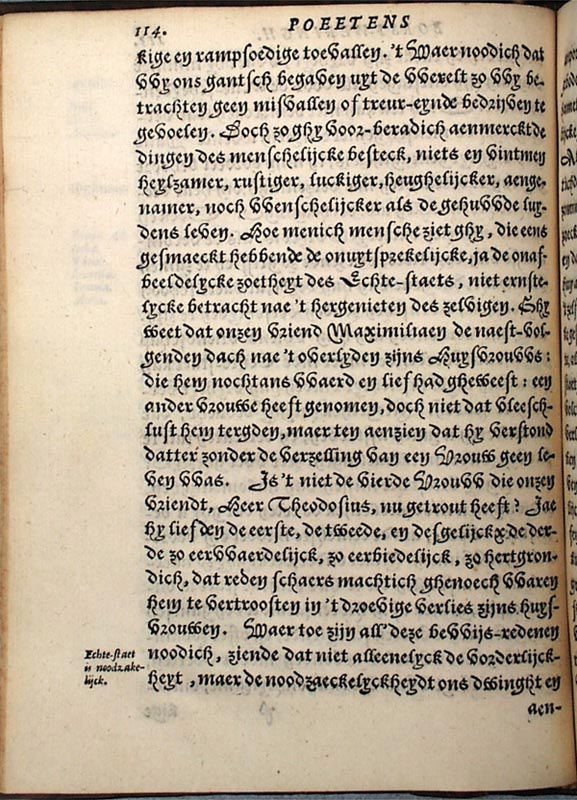 114. POEETENS
kige en rampsoedige toevallen. 't Waer noodich dat
vvy ons gantsch begaven uyt de vverelt zo vvy be-
trachten geen misvallen of treur-eynde bedrijven te
gevoelen. Doch zo ghy voor-beradich aenmerckt de
dingen des menschelijcke besteck, niets en vintmen
heylzamer, rustiger, luckiger, heughelijcker, aenge-
namer, noch vvenschelijcker als de gehuvvde luy-
dens leven. Hoe menich mensche ziet ghy, die eens
gesmaeckt hebbende de onuytsprekelijcke, ja de onaf-
beeldelycke zoetheyt des Echte-staets, niet ernste-
lycke betracht nae 't hergenieten des zelvigen. Ghy
weet dat onzen vriend Maximiliaen de naest-vol-
genden dach nae 't overlyden zijns Huysvrouvvs:
die hem nochtans vvaerd en lief had gheweest: een
ander vrouwe heeft genomen, doch niet dat vleesch-
lust hem tergden, maer ten aenzien dat hy verstond
datter zonder de verzelling van een vrouw geen le-
ven vvas. Is 't niet de vierde vrouvv die onzen
vriendt, Heer Theodosius, nu getrout heeft? Jae
hy liefden de eerste, de tweede, en desgelijckx de der-
de zo eervvaerdelijck, zo eerbiedelijck, zo hertgron-
dich, dat reden schaers machtich ghenoech vvaren
hem te vertroosten in 't droevige verlies zijns huys-
vrouwen. Waer toe zijn all' deze bevvijs-redenen
noodich, ziende dat niet alleenelyck de vorderlijck-
heyt, maer de noodzaeckelyckheydt ons dwinght en
aen-
Echte-staet
is noodzake-
lijck.